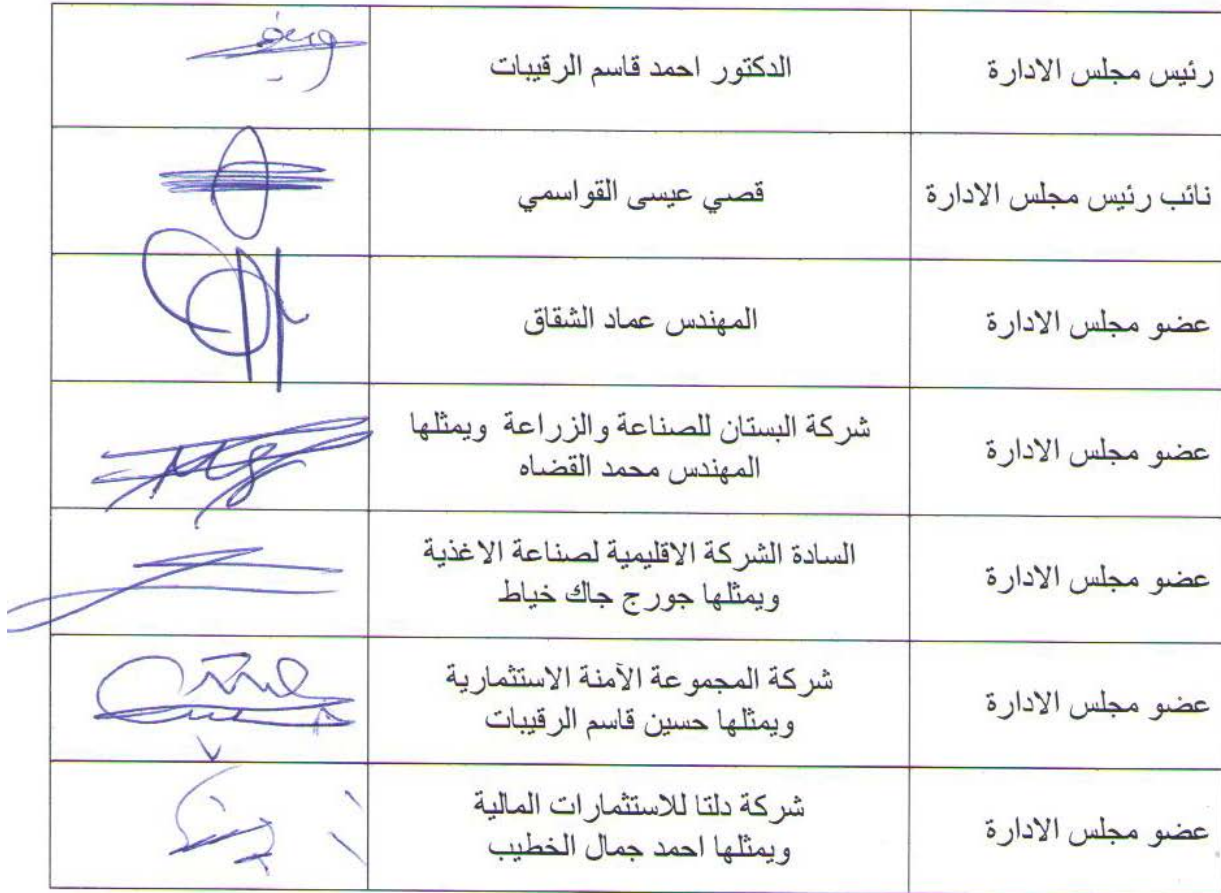 رئيس مجلس الادارة
الدكتور احمد قاسم الرقيبات
نائب رئيس مجلس الادارة
قصي عيسى القواسمي
عضو مجلس الادارة
المهندس عماد الشقاق
عضو مجلس الادارة
شركة البستان للصناعة والزراعة ويمثلها
المهندس محمد القضاه
عضو مجلس الادارة
السادة الشركة الاقليمية لصناعة الاغذية
ويمثلها جورج جاك خياط
عضو مجلس الادارة
شركة المجموعة الآمنة الاستثمارية
ويمثلها حسين قاسم الرقيبات
عضو مجلس الادارة
شركة دلتا للاستثمارات المالية
ويمثلها احمد جمال الخطيب